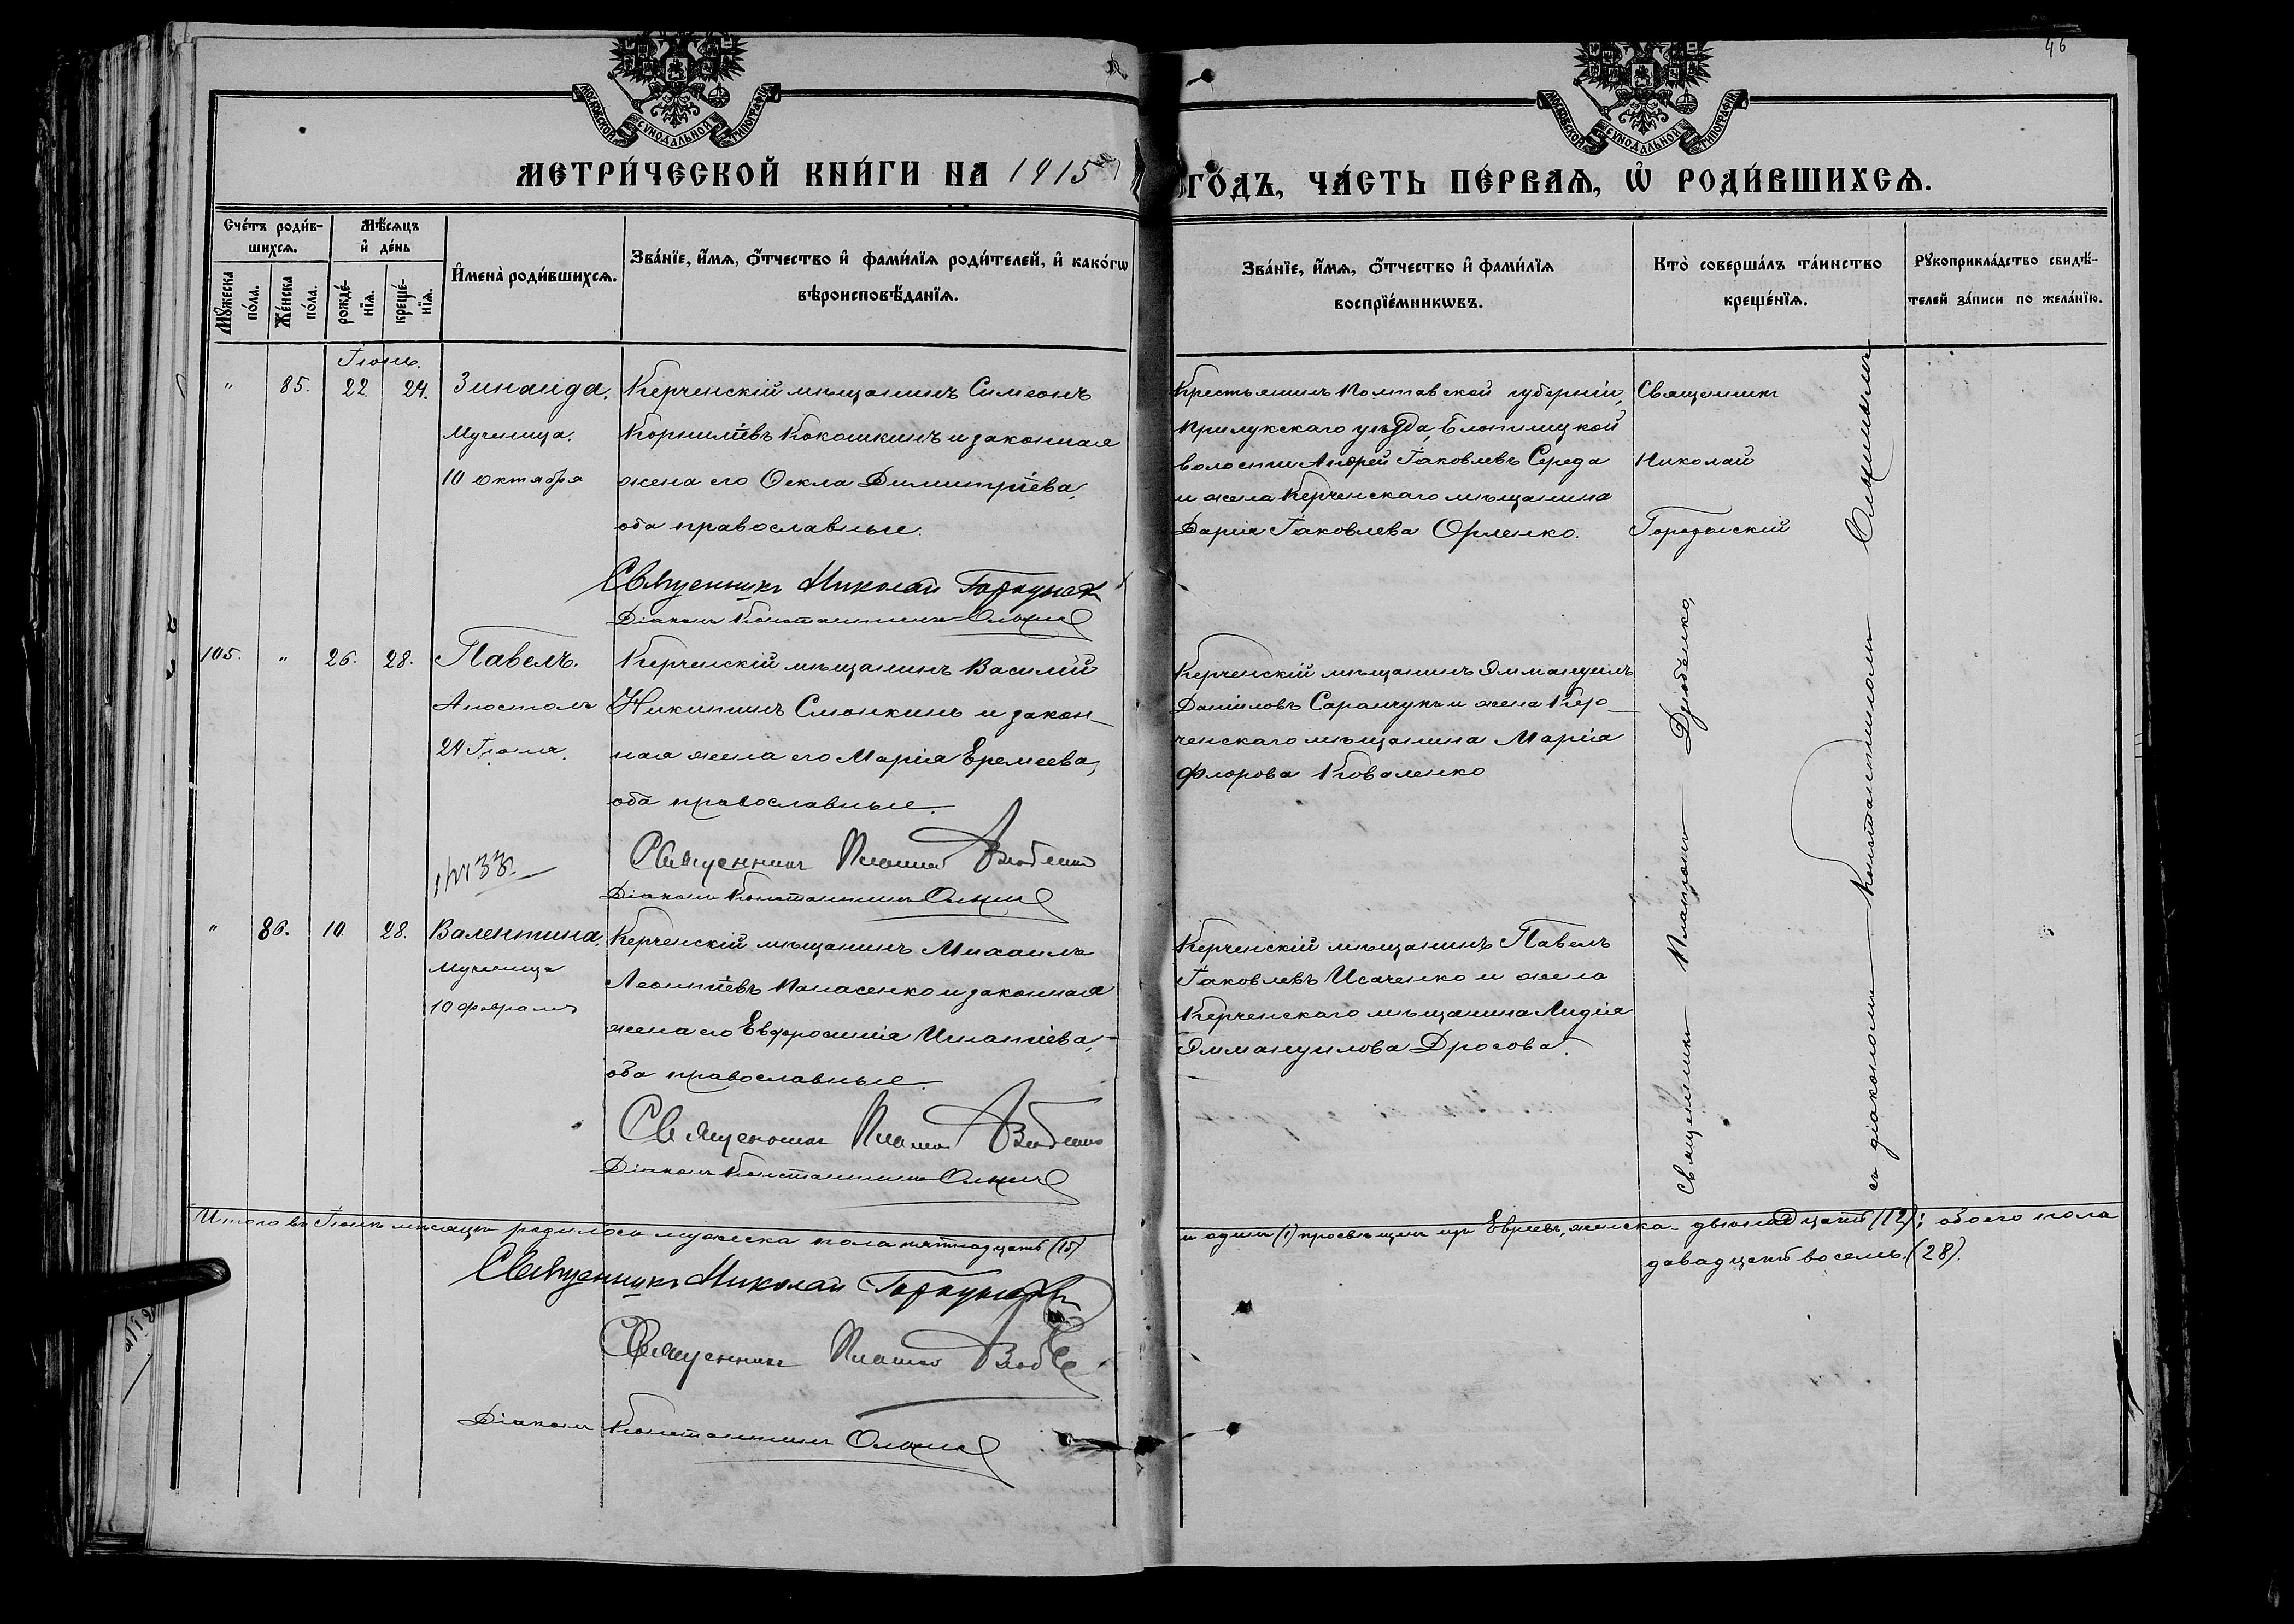 46
МОСКОВСКОЙ СѴНОДАЛЬНОЙ ТИПОГРАФІИ
МОСКОВСКОЙ СѴНОДАЛЬНОЙ ТИПОГРАФІИ
МЕТРИ́ЧЕСКОЙ КНИ́ГИ НА 1915 ГО́ДЪ, ЧА́СТЬ ПЕ́РВАѦ, Ѡ҆ РОДИ́ВШИХСѦ.
Сче́тъ роди́в-
шихсѧ.
Мꙋ́жеска по́ла.
Же́нска по́ла.
Мѣ́сѧцъ
и҆ де́нь
рожде́-
нїѧ.
креще́-
нїѧ.
И҆мена̀ роди́вшихсѧ.
Зва́нїе, и҆́мѧ, ѻ҆́тчество и҆ фами́лїѧ роди́телей, и҆ како́гѡ
вѣроисповѣ́данїѧ.
Зва́нїе, и҆́мѧ, ѻ҆́тчество и҆ фами́лїѧ
воспрїе́мникѡвъ.
Кто̀ соверша́лъ та́инство
креще́нїѧ.
Рꙋкоприкла́дство свидѣ́-
телей за́писи по жела́нїю.
Іюнь.
" 85. 22 24. Зинаида.
Мученица.
10 октября
Керченскій мѣщанинъ Симеонъ
Корниліевъ Кокошкинъ и законная
жена его Ѳекла Димитріева,
оба православные.
Священникъ Николай
Діаконъ Константинъ
Крестьянинъ Полтавской губерніи,
Прилукскаго уѣзда,
волости Андрей Іаковлевъ Середа
и жена Керченскаго мѣщанина
Дарія Іаковлева Орленко.
Священникъ
Николай
105. " 26. 28. Павелъ.
Апостолъ
29 Іюня.
Керченскій мѣщанинъ Василій
Никитинъ Смокинъ и закон-
ная жена его Марія Еремеева,
оба православные.
Священникъ Платонъ Дзюбенко
Діаконъ Константинъ
Керченскій мѣщанинъ Эммануилъ
Даніиловъ Саранчукъ и жена Кер-
ченскаго мѣщанина Марія
Флорова Коваленко
" 86. 10. 28. Валентина.
Мученица
10 февраля
Керченскій мѣщанинъ Михаилъ
Леонтіевъ Панасенко и законная
жена его Евфросинія Игнатіева,
оба православные.
Священникъ Платонъ Дзюбенко
Діаконъ Константинъ
Керченскій мѣщанинъ Павелъ
Іаковлевъ Исаченко и жена
Керченскаго мѣщанина Лидія
Эммануилова Дросова.
Священникъ Платонъ Дзюбенко,
съ діакономъ Константиномъ
Итого въ Іюнѣ мѣсяцѣ родилось мужеска пола пятнадцать (15)
и одинъ (1) просвѣщенъ изъ Евреевъ, женска двѣнадцать (12); обоего пола
двадцать восемь (28).
Священникъ Николай
Священникъ Платонъ
Діаконъ Константинъ